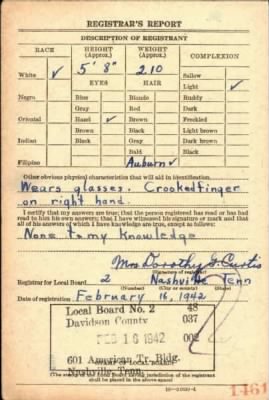 REGISTRAR'S REPORT
DESCRIPTION OF REGISTRANT
RACE HEIGHT (Approx.) WEIGHT (Approx.) COMPLEXION
White ✓ 5' 8" 210 Sallow
EYES HAIR Light ✓
Negro Blue Blonde Ruddy
Gray Red Dark
Oriental Hazel ✓ Brown Freckled
Brown Black Light brown
Indian Black Gray Dark brown
Bald Black
Filipino Auburn ✓
Other obvious physical characteristics that will aid in identification
Wears glasses. Crooked finger
on right hand.
I certify that my answers are true; that the person registered has read or has had
read to him his own answers; that I have witnessed his signature or mark and that
all of his answers of which I have knowledge are true, except as follows:
None to my Knowledge
Mrs Dorothy G. Curtis
(Signature of registrar)
Registrar for Local Board 2 Nashville Tenn
(Number) (City or county) (State)
Date of registration February 16, 1942
Local Board No. 2 48
Davidson County 037
FEB 16 1942 002
601 American Tr. Bldg.
(STAMP OF LOCAL BOARD)
Nashville, Tenn.
The stamp of the Local Board having jurisdiction of the registrant
shall be placed in the above space
1461